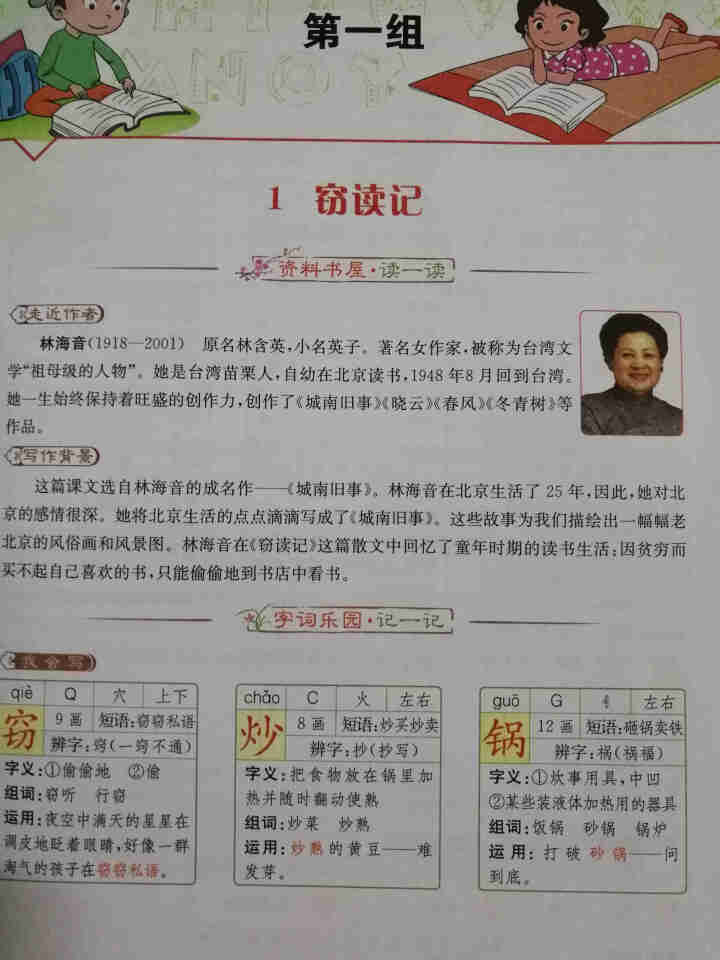 第一组
1 窃读记
资料书屋·读一读
走近作者
林海音(1918—2001) 原名林含英,小名英子。著名女作家,被称为台湾文
学“祖母级的人物”。她是台湾苗栗人,自幼在北京读书,1948年8月回到台湾。
她一生始终保持着旺盛的创作力,创作了《城南旧事》《晓云》《春风》《冬青树》等
作品。
写作背景
这篇课文选自林海音的成名作——《城南旧事》。林海音在北京生活了25年,因此,她对北
京的感情很深。她将北京生活的点点滴滴写成了《城南旧事》。这些故事为我们描绘出一幅幅老
北京的风俗画和风景图。林海音在《窃读记》这篇散文中回忆了童年时期的读书生活:因贫穷而
买不起自己喜欢的书,只能偷偷地到书店中看书。
字词乐园·记一记
我会写
qiè Q 穴 上下
窃 9画 短语:窃窃私语
辨字:窍(一窍不通)
字义:①偷偷地 ②偷
组词:窃听 行窃
运用:夜空中满天的星星在
调皮地眨着眼睛,好像一群
淘气的孩子在窃窃私语。
chǎo C 火 左右
炒 8画 短语:炒买炒卖
辨字:抄(抄写)
字义:把食物放在锅里加
热并随时翻动使熟
组词:炒菜 炒熟
运用:炒熟的黄豆——难
发芽。
guō G 钅 左右
锅 12画 短语:砸锅卖铁
辨字:祸(祸福)
字义:①炊事用具,中凹
②某些装液体加热用的器具
组词:饭锅 砂锅 锅炉
运用:打破砂锅——问
到底。